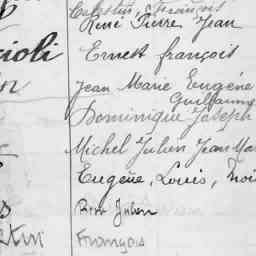 Célestin, François
René Pierre Jean
cioli Ernest françois
Jean Marie Eugène
Guillaume
Dominique Joseph
Michel Julien Jean Mar
Eugène, Louis,
Pierre Julien
François